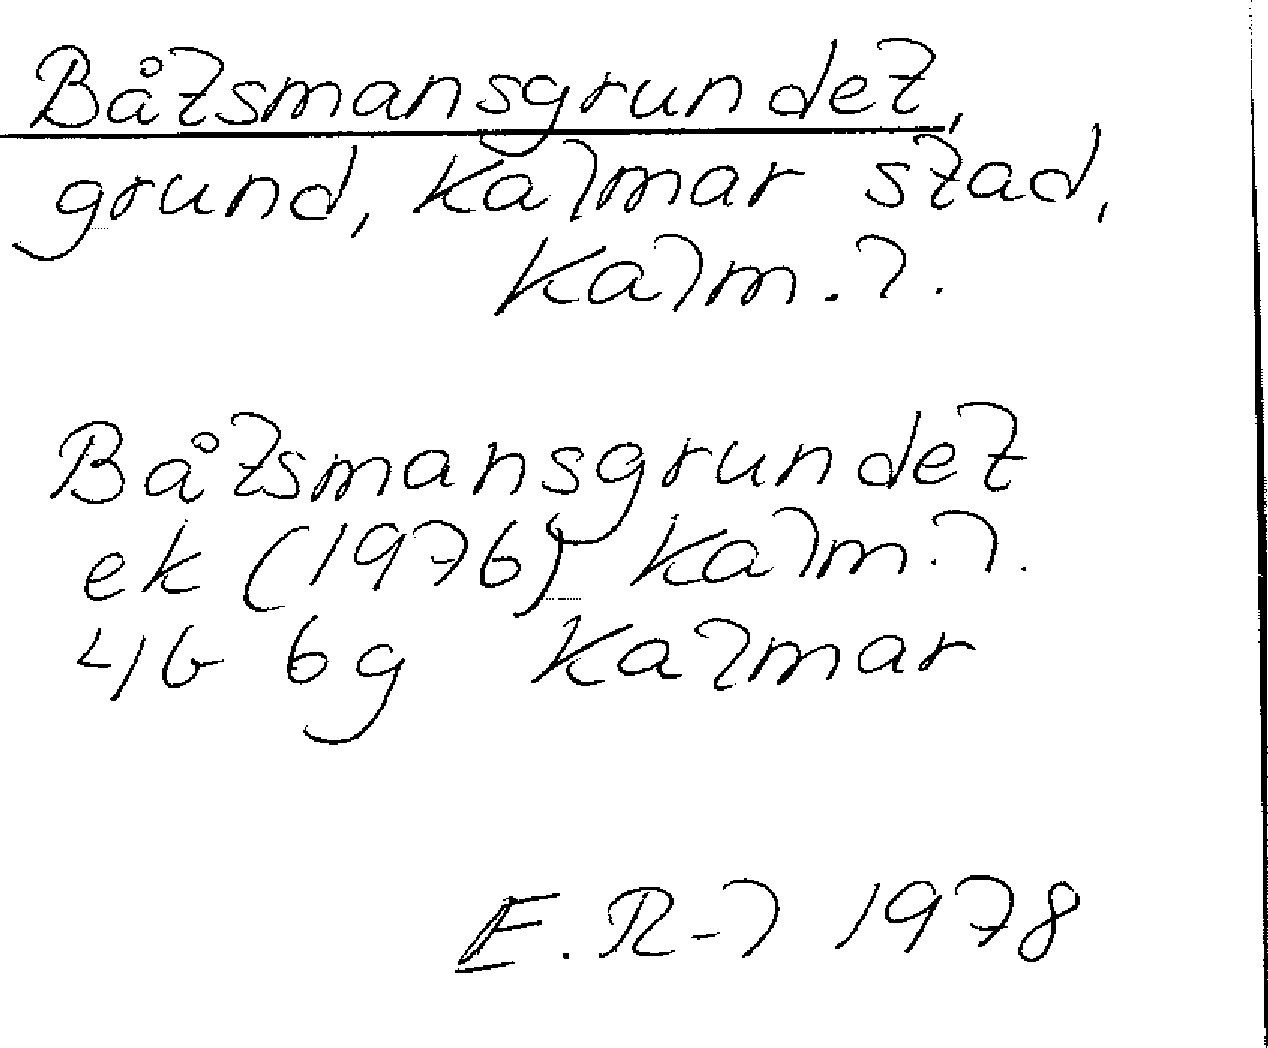 Båtsmansgrundet,
grund, Kalmar stad,
Kalm. l.
Båtsmansgrundet
ek (1976) Kalm. l.
4G 6g Kalmar
E. R-l 1978